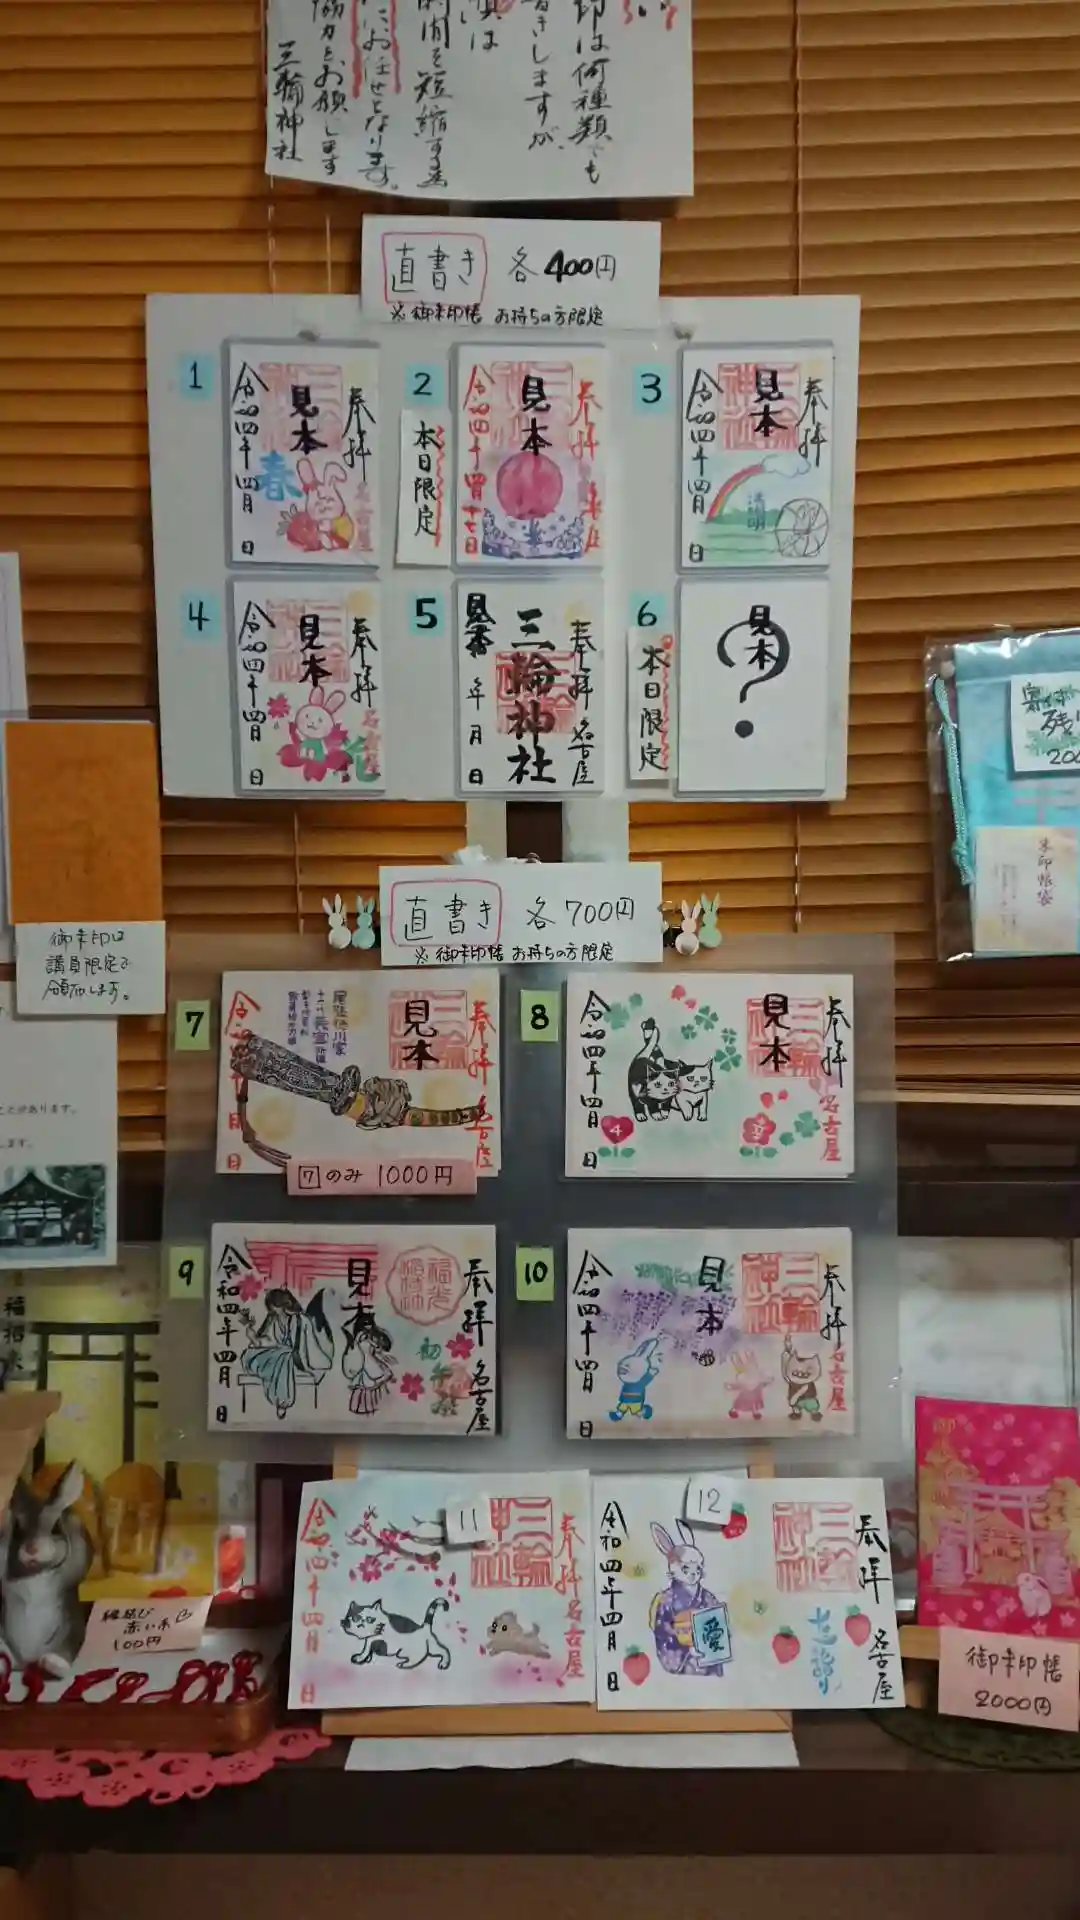 印は何種類でも
きしますが、
は
時間を短縮する為
にお任せとなります。
協力をお願いします
三輪神社
直書き 各400円
※御朱印帳 お持ちの方限定
1
奉拝
見本
春
名古屋
令和四年四月 日
2
本日限定
奉拝
見本
令和四年四月十七日
3
奉拝
見本
清明
令和四年四月 日
4
奉拝
見本
名古屋
令和四年四月 日
5
奉拝 名古屋
三輪神社
見本
年 月 日
6
本日限定
見本
?
直書き 各700円
※御朱印帳 お持ちの方限定
7
奉拝 名古屋
見本
尾張徳川家
日
7のみ 1000円
8
奉拝 名古屋
三輪神社
見本
4
令和四年四月 日
9
奉拝 名古屋
見本
初午祭
令和四年四月 日
10
奉拝 名古屋
三輪神社
見本
令和四年四月 日
11
奉拝 名古屋
三輪神社
令和四年四月 日
12
奉拝 名古屋
三輪神社
愛
令和四年四月 日
御朱印は
講員限定で
領布します。
ことがあります。
します。
朱印帳袋
200
縁結び
赤い糸
100円
御朱印帳
2000円